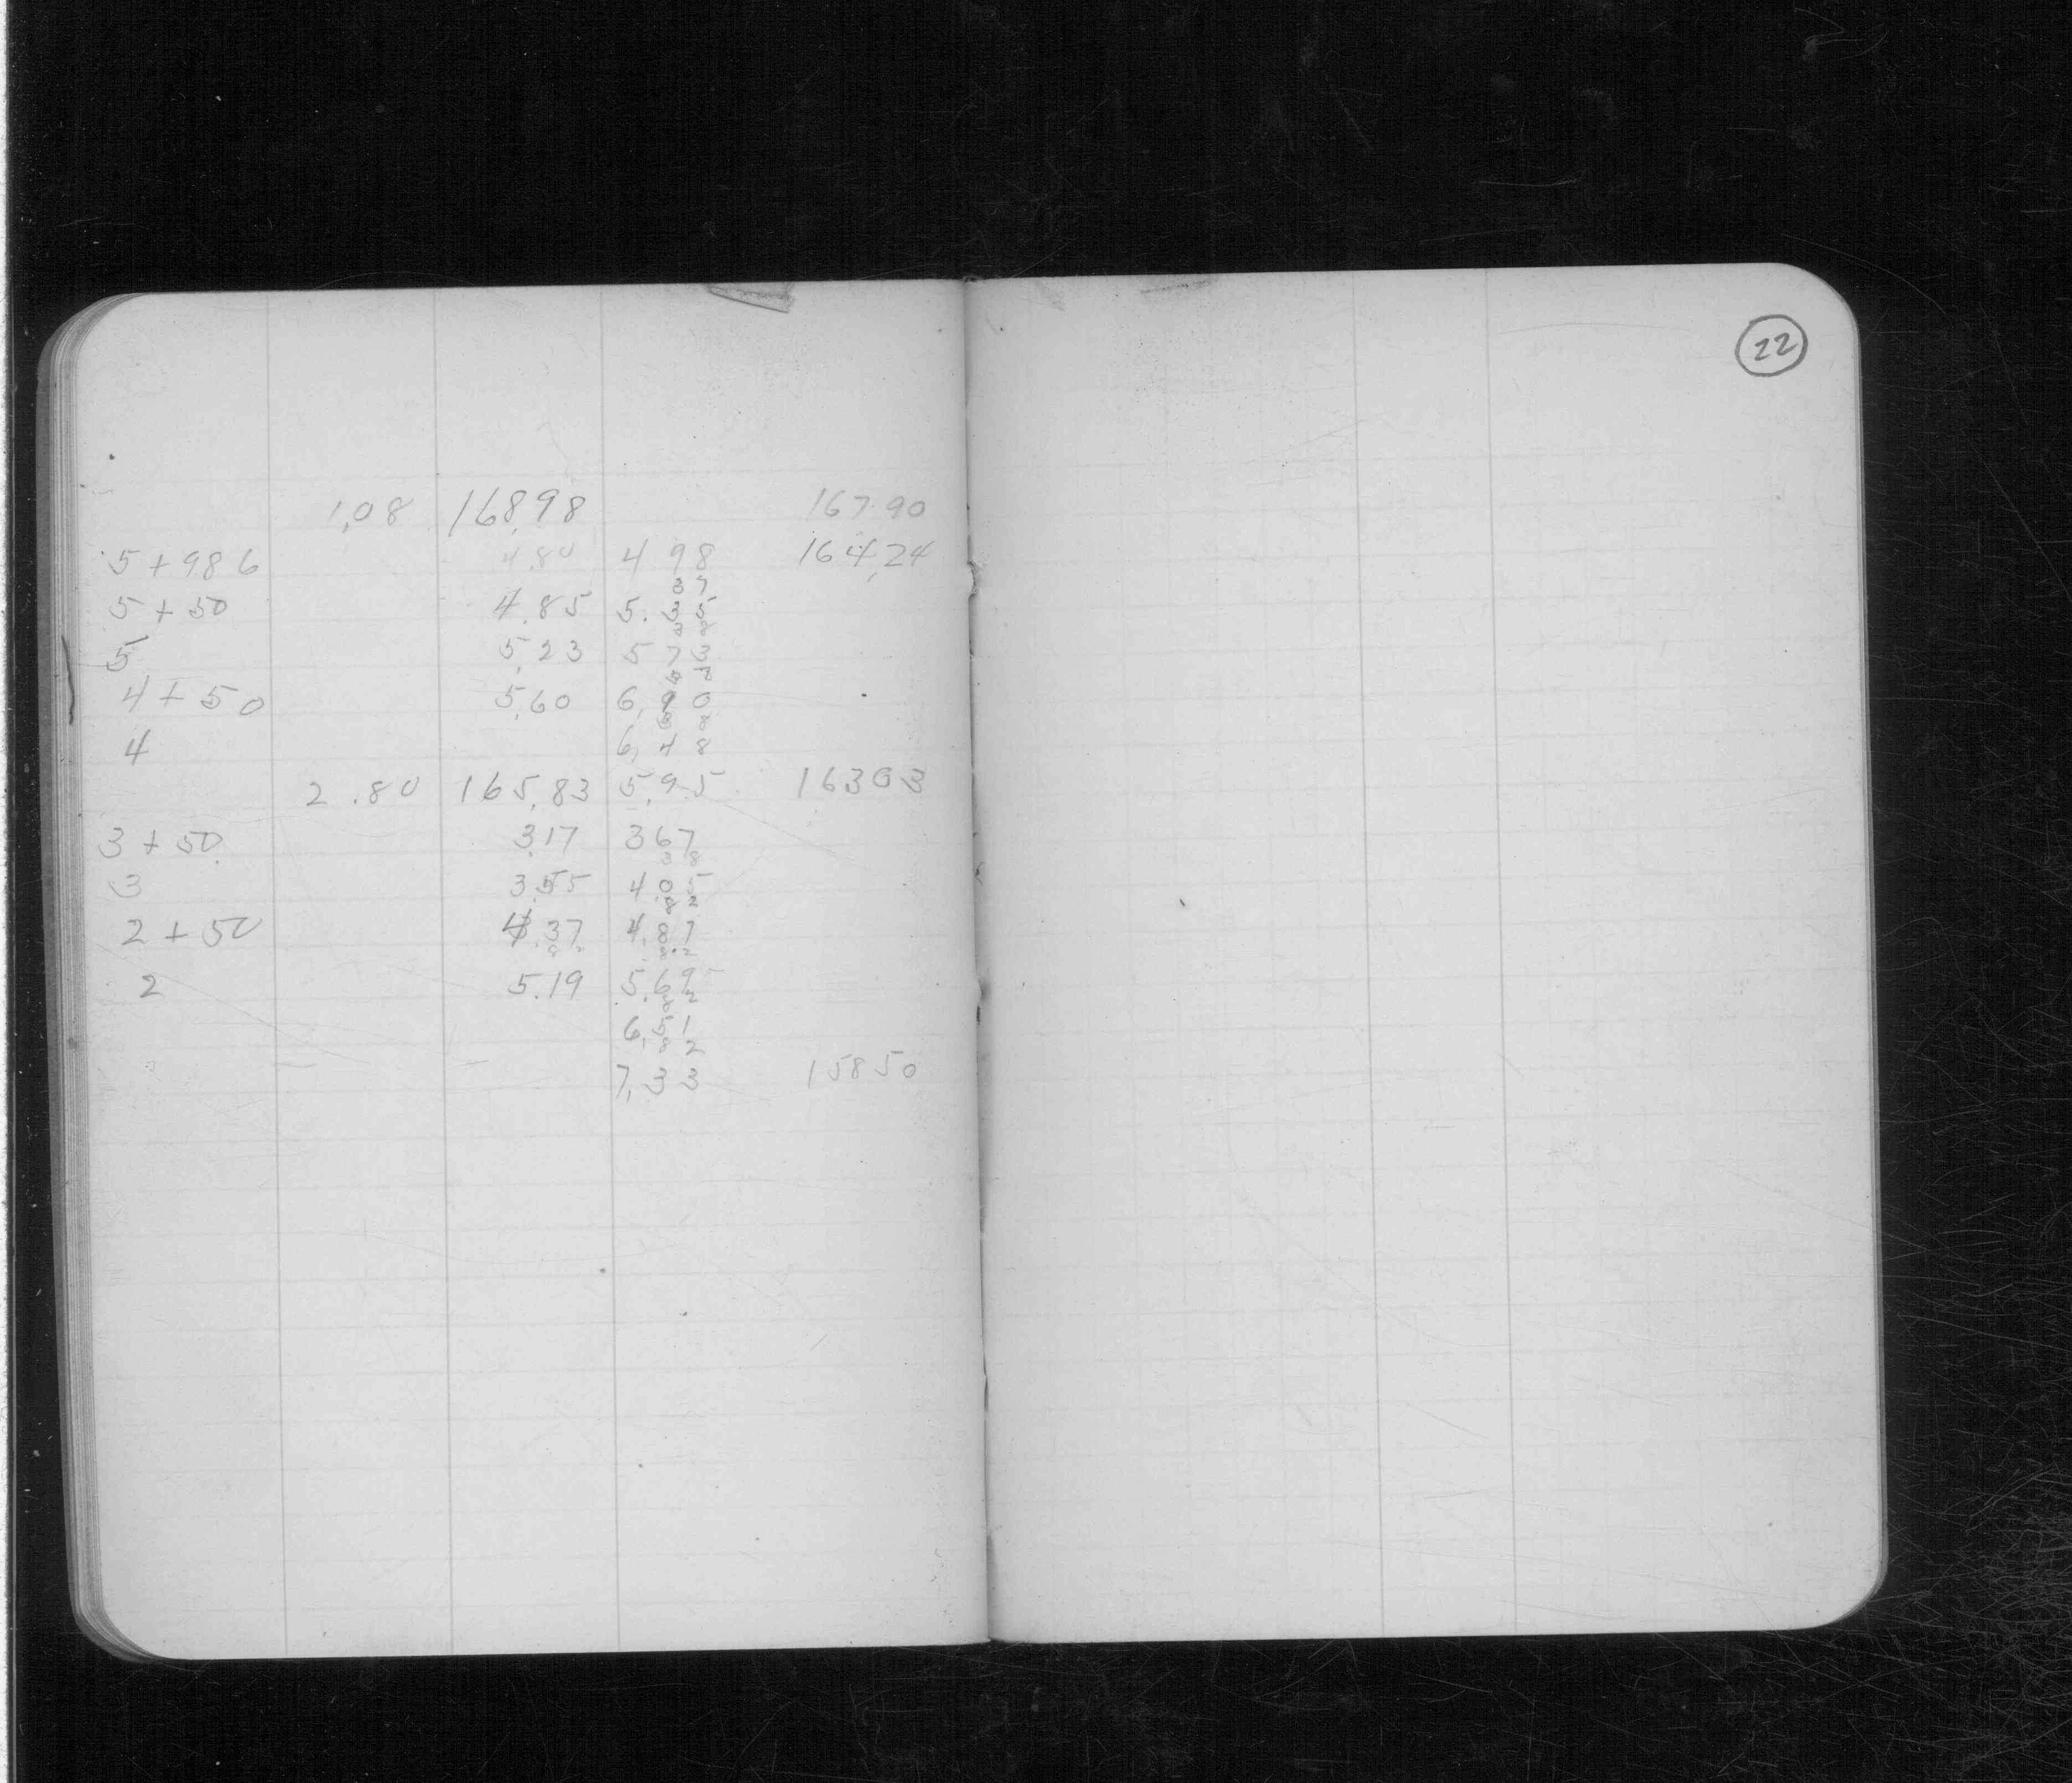 22
1,08 168,98 167.90
5 + 98 6 4.80 4 98 164,24
3 7
5 + 50 4.85 5. 3 5
3 8
5 5,23 5 7 3
4 + 50 5,60 6, 0
4 6, 4 8
2.80 165,83 5,95 163 0 3
3 + 50 3.17 3 67
3 8
3 3.55 4 0 5
8 2
2 + 50 4.37 4,87
8 2
2 5.19 5.69
8 2
6,51
8 2
7,33 158 50